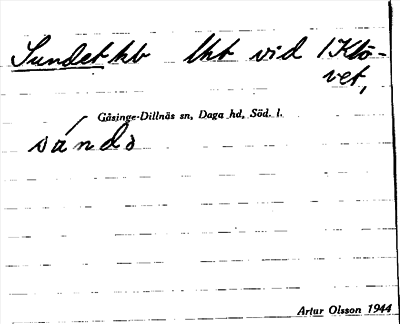 Sundet kb lht vid /Klö-
vet,
Gåsinge-Dillnäs sn, Daga hd, Söd. l.
Artur Olsson 1944